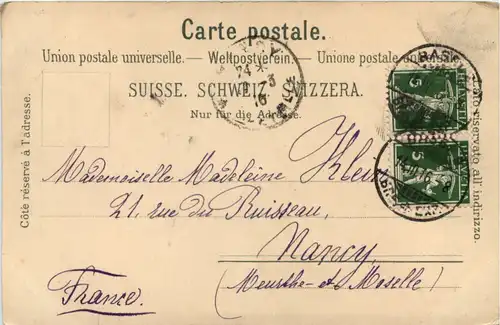 Carte postale.
Union postale universelle. — Weltpostverein. — Unione postale universale.
SUISSE. SCHWEIZ. SVIZZERA.
Nur für die Adresse.
Côté réservé à l'adresse.
Lato riservato all'indirizzo.
Mademoiselle Madeleine
21, rue du Ruisseau,
Nancy,
(Meurthe-et-Moselle)
France.
HELVETIA
5
HELVETIA
5